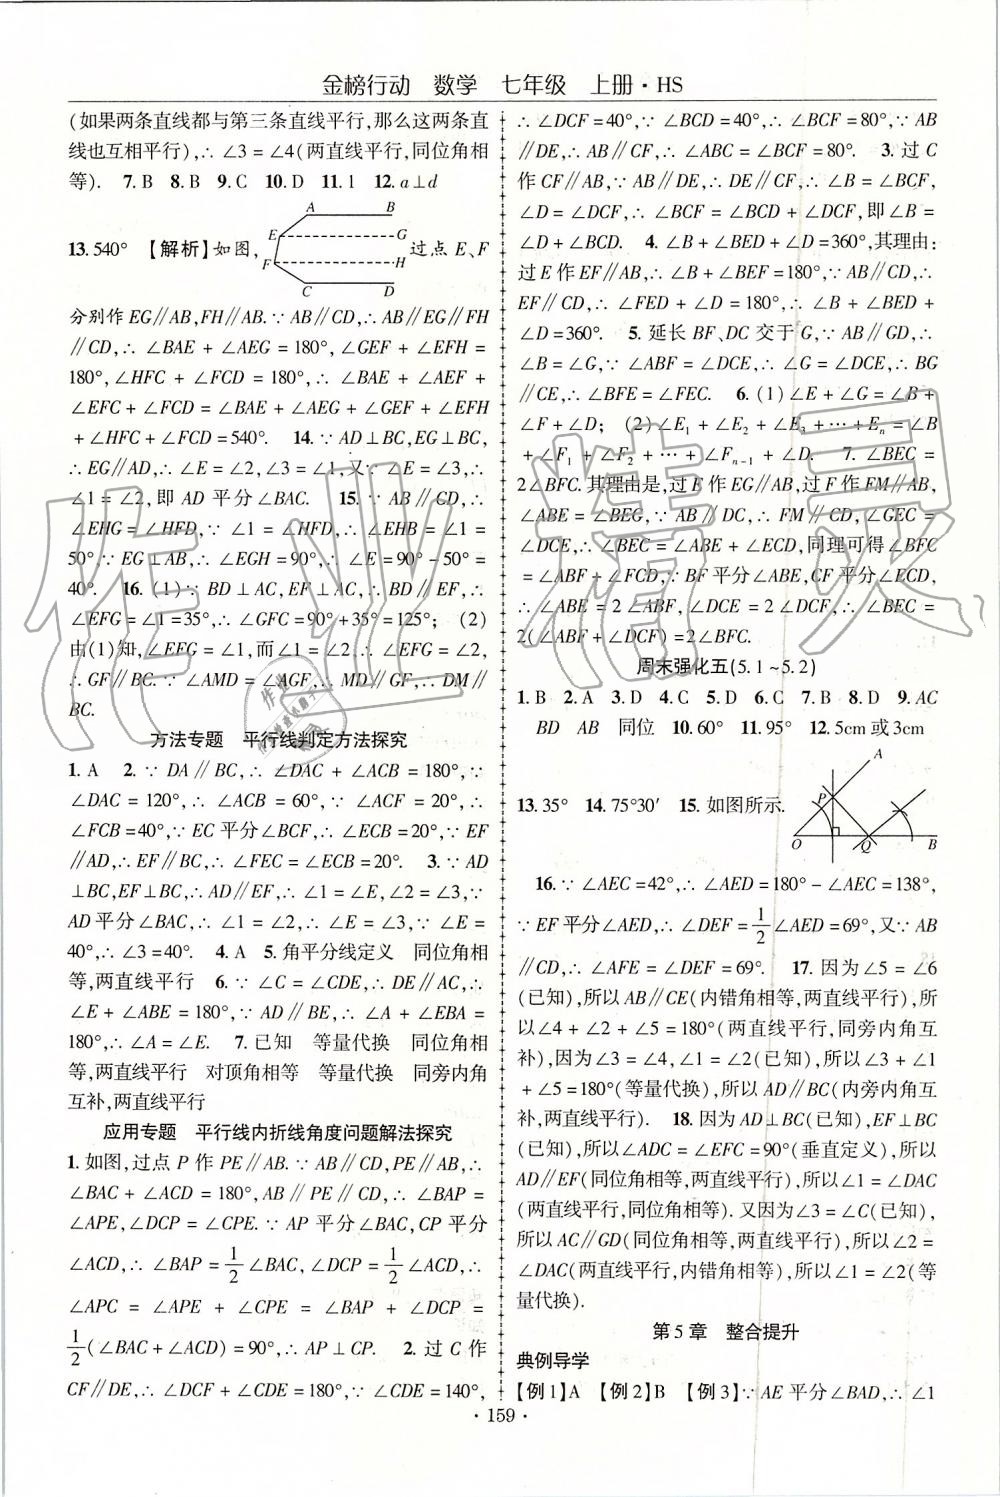 金榜行动　数学　七年级　上册·HS
(如果两条直线都与第三条直线平行,那么这两条直
线也互相平行),∴∠3=∠4(两直线平行,同位角相
等).　7.B　8.B　9.C　10.D　11.1　12.a⊥d
A B
E G
13.540°　【解析】如图,　过点E、F
F H
C D
分别作EG∥AB,FH∥AB.∵AB∥CD,∴AB∥EG∥FH
∥CD,∴∠BAE+∠AEG=180°,∠GEF+∠EFH=
180°,∠HFC+∠FCD=180°,∴∠BAE+∠AEF+
∠EFC+∠FCD=∠BAE+∠AEG+∠GEF+∠EFH
+∠HFC+∠FCD=540°.　14.∵AD⊥BC,EG⊥BC,
∴EG∥AD,∴∠E=∠2,∠3=∠1,又∵∠E=∠3,∴
∠1=∠2,即AD平分∠BAC.　15.∵AB∥CD,∴
∠EHG=∠HFD,∵∠1=∠HFD,∴∠EHB=∠1=
50°∵EG⊥AB,∴∠EGH=90°,∴∠E=90°-50°=
40°.　16.(1)∵BD⊥AC,EF⊥AC,∴BD∥EF,∴
∠EFG=∠1=35°,∴∠GFC=90°+35°=125°;　(2)
由(1)知,∠EFG=∠1,而∠1=∠2,∴∠EFG=∠2,
∴GF∥BC.∵∠AMD=∠AGF,∴MD∥GF,∴DM∥
BC.
方法专题　平行线判定方法探究
1.A　2.∵DA∥BC,∴∠DAC+∠ACB=180°,∵
∠DAC=120°,∴∠ACB=60°,∵∠ACF=20°,∴
∠FCB=40°,∵EC平分∠BCF,∴∠ECB=20°,∵EF
∥AD,∴EF∥BC,∴∠FEC=∠ECB=20°.　3.∵AD
⊥BC,EF⊥BC,∴AD∥EF,∴∠1=∠E,∠2=∠3,∵
AD平分∠BAC,∴∠1=∠2,∴∠E=∠3,∵∠E=
40°,∴∠3=40°.　4.A　5.角平分线定义　同位角相
等,两直线平行　6.∵∠C=∠CDE,∴DE∥AC,∴
∠E+∠ABE=180°,∵AD∥BE,∴∠A+∠EBA=
180°,∴∠A=∠E.　7.已知　等量代换　同位角相等,
两直线平行　对顶角相等　等量代换　同旁内角
互补,两直线平行
应用专题　平行线内折线角度问题解法探究
1.如图,过点P作PE∥AB.∵AB∥CD,PE∥AB,∴
∠BAC+∠ACD=180°,AB∥PE∥CD,∴∠BAP=
∠APE,∠DCP=∠CPE.∵AP平分∠BAC,CP平分
∠ACD,∴∠BAP=1/2∠BAC,∠DCP=1/2∠ACD,∴
∠APC=∠APE+∠CPE=∠BAP+∠DCP=
1/2(∠BAC+∠ACD)=90°,∴AP⊥CP.　2.过C作
CF∥DE,∴∠DCF+∠CDE=180°,∵∠CDE=140°,
∴∠DCF=40°,∵∠BCD=40°,∴∠BCF=80°,∵AB
∥DE,∴AB∥CF,∴∠ABC=∠BCF=80°.　3.过C
作CF∥AB,∵AB∥DE,∴DE∥CF,∴∠B=∠BCF,
∠D=∠DCF,∴∠BCF=∠BCD+∠DCF,即∠B=
∠D+∠BCD.　4.∠B+∠BED+∠D=360°,其理由:
过E作EF∥AB,∴∠B+∠BEF=180°,∵AB∥CD,∴
EF∥CD,∴∠FED+∠D=180°,∴∠B+∠BED+
∠D=360°.　5.延长BF、DC交于G,∵AB∥GD,∴
∠B=∠G,∵∠ABF=∠DCE,∴∠G=∠DCE,∴BG
∥CE,∴∠BFE=∠FEC.　6.(1)∠E+∠G=∠B+
∠F+∠D;　(2)∠E1+∠E2+∠E3+⋯+En=∠B
+∠F1+∠F2+⋯+∠Fn-1+∠D.　7.∠BEC=
2∠BFC.其理由是,过E作EG∥AB,过F作FM∥AB,
∠ABE=∠BEG,∵AB∥DC,∴FM∥CD,∠GEC=
∠DCE,∴∠BEC=∠ABE+∠ECD,同理可得∠BFC
=∠ABF+∠FCD∵BF平分∠ABE,CF平分∠ECD,
∴∠ABE=2∠ABF,∠DCE=2∠DCF,∴∠BEC=
2(∠ABF+∠DCF)=2∠BFC.
周末强化五(5.1~5.2)
1.B　2.A　3.D　4.C　5.D　6.C　7.B　8.D　9.AC
BD　AB　同位　10.60°　11.95°　12.5cm或3cm
A
P
13.35°　14.75°30′　15.如图所示.
O Q B
16.∵∠AEC=42°,∴∠AED=180°-∠AEC=138°,
∵EF平分∠AED,∴∠DEF=1/2∠AED=69°,又∵AB
∥CD,∴∠AFE=∠DEF=69°.　17.因为∠5=∠6
(已知),所以AB∥CE(内错角相等,两直线平行),所
以∠4+∠2+∠5=180°(两直线平行,同旁内角互
补),因为∠3=∠4,∠1=∠2(已知),所以∠3+∠1
+∠5=180°(等量代换),所以AD∥BC(内旁内角互
补,两直线平行).　18.因为AD⊥BC(已知),EF⊥BC
(已知),所以∠ADC=∠EFC=90°(垂直定义),所以
AD∥EF(同位角相等,两直线平行),所以∠1=∠DAC
(两直线平行,同位角相等).又因为∠3=∠C(已知),
所以AC∥GD(同位角相等,两直线平行),所以∠2=
∠DAC(两直线平行,内错角相等),所以∠1=∠2(等
量代换).
第5章　整合提升
典例导学
【例1】A　【例2】B　【例3】∵AE平分∠BAD,∴∠1
·159·
作业精灵